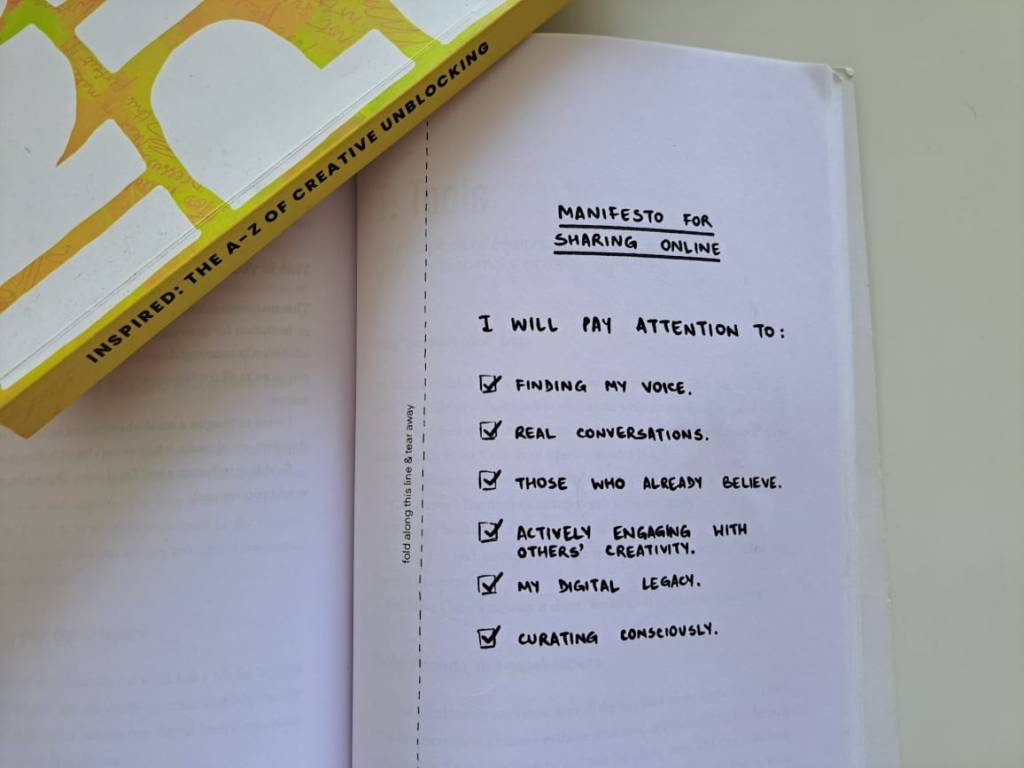 INSPIRED: THE A-Z OF CREATIVE UNBLOCKING
MANIFESTO FOR
SHARING ONLINE
I WILL PAY ATTENTION TO:
FINDING MY VOICE.
REAL CONVERSATIONS.
THOSE WHO ALREADY BELIEVE.
ACTIVELY ENGAGING WITH
OTHERS' CREATIVITY.
MY DIGITAL LEGACY.
CURATING CONSCIOUSLY.
fold along this line & tear away